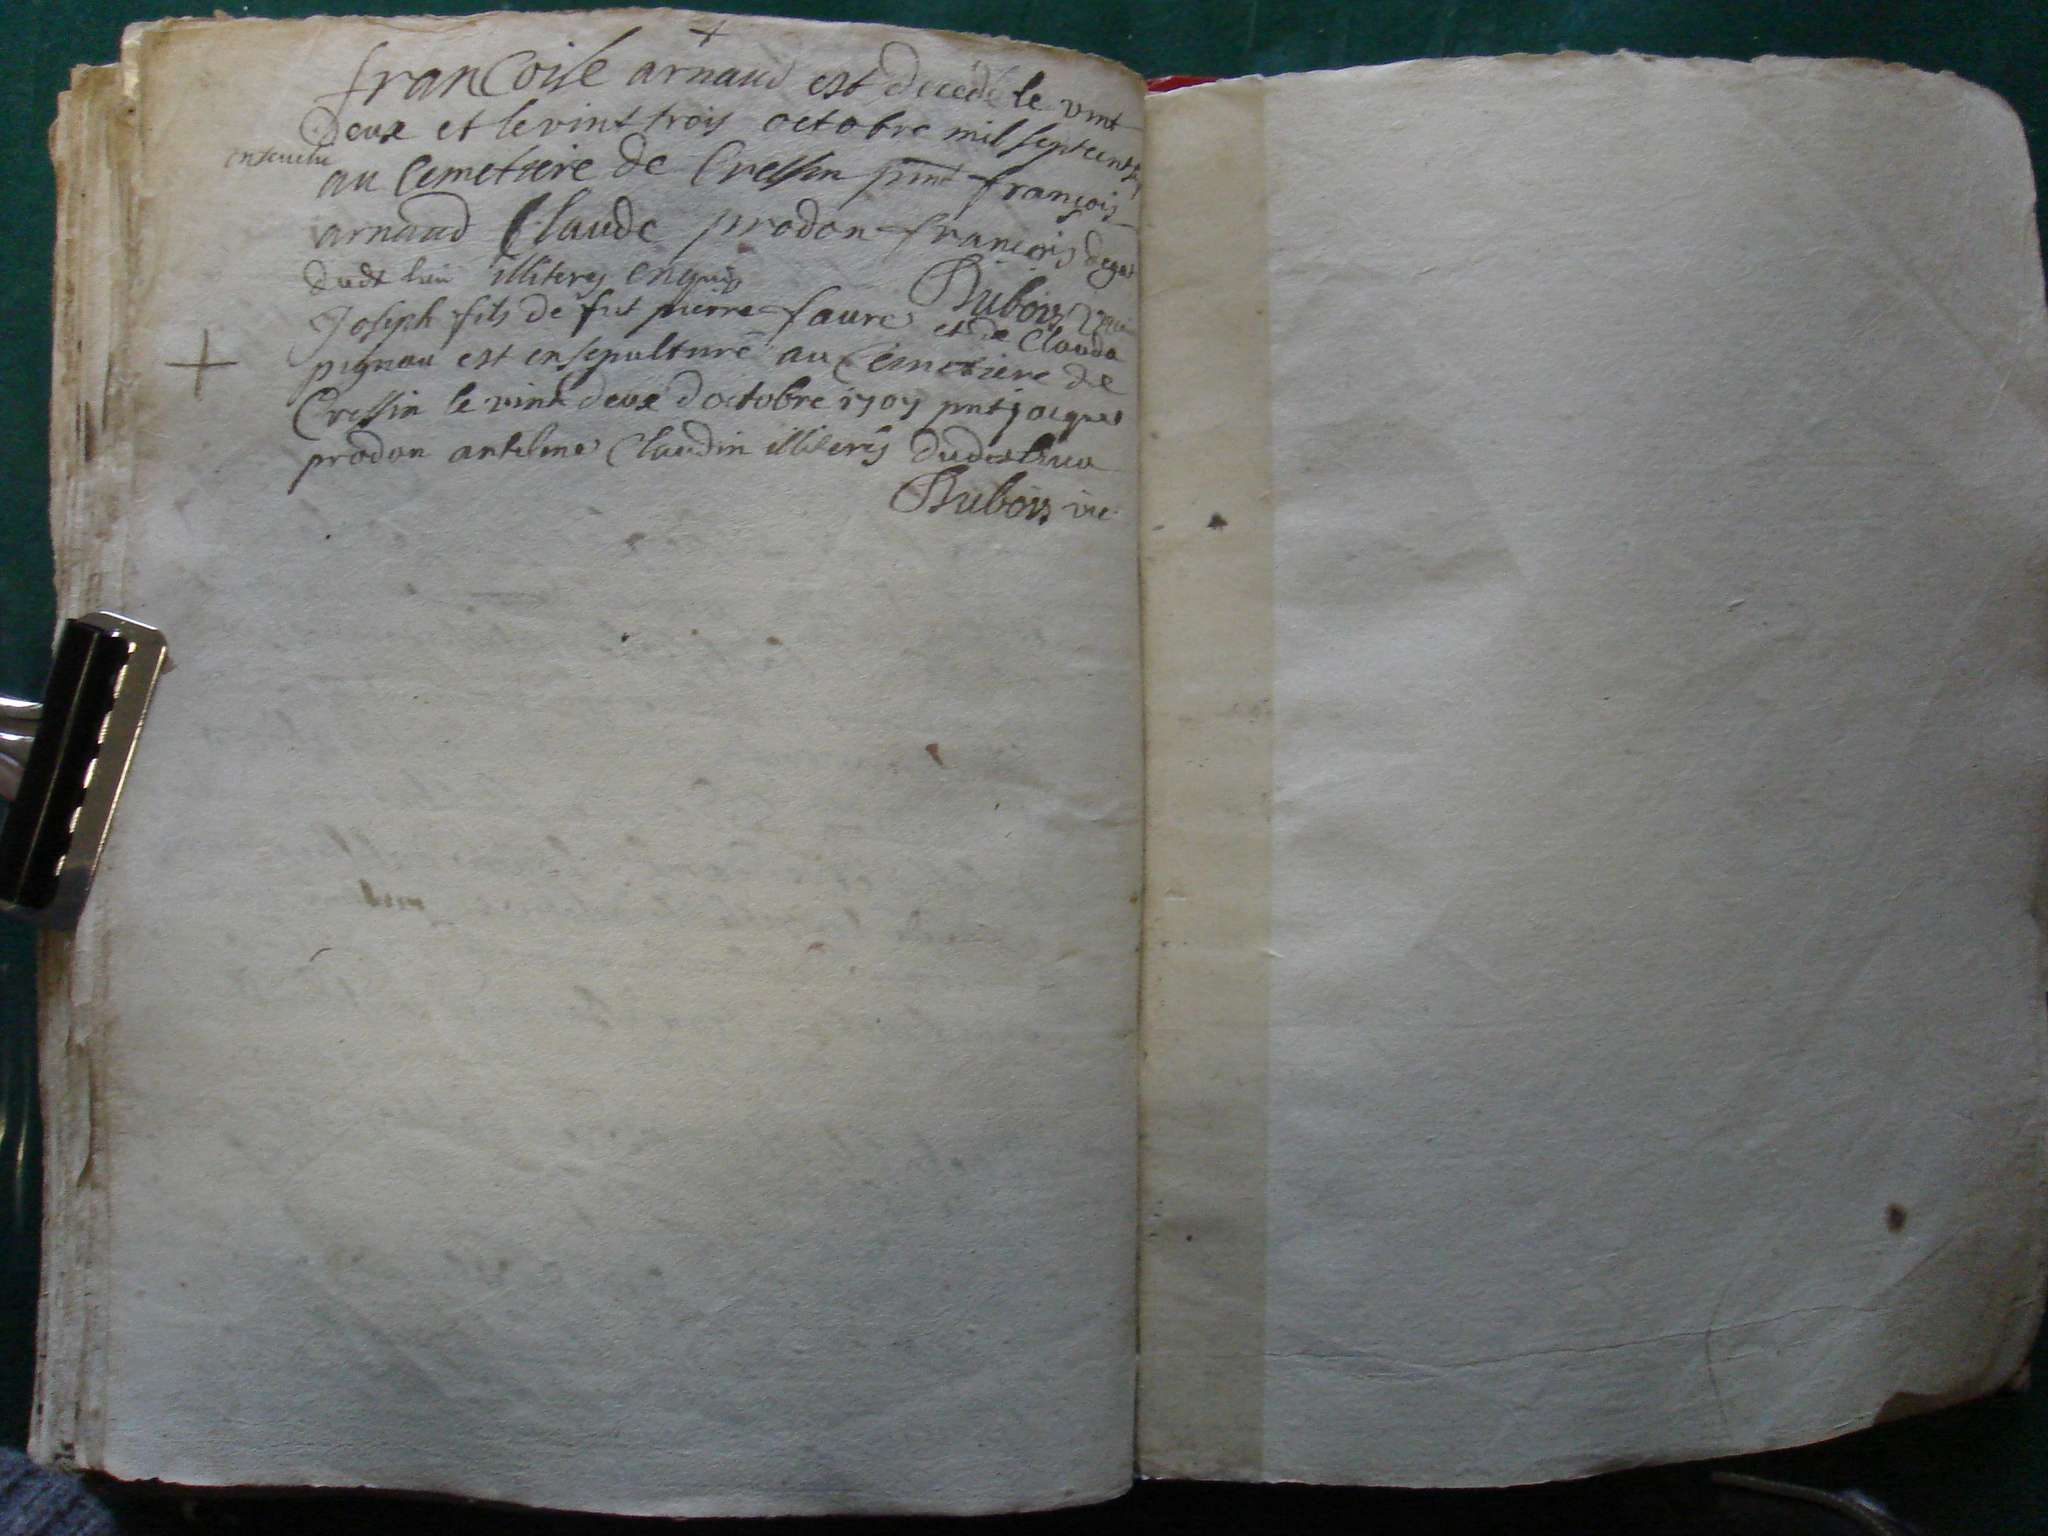 +
francoise arnaud est decede le vint
deux et le vint trois octobre mil sept cent
ensevelie
au Cemetiere de Cressin pnt françois
arnaud Claude prodon françois
dudt lieu illiterés enquis
Dubois
Joseph fils de fut pierre faure et de Clauda
+ pignau est ensepulturé au Cemetiere de
Cressin le vint deux d octobre 1707 pnt jacques
prodon antelme Claudin illiterés dudit lieu
Dubois vic